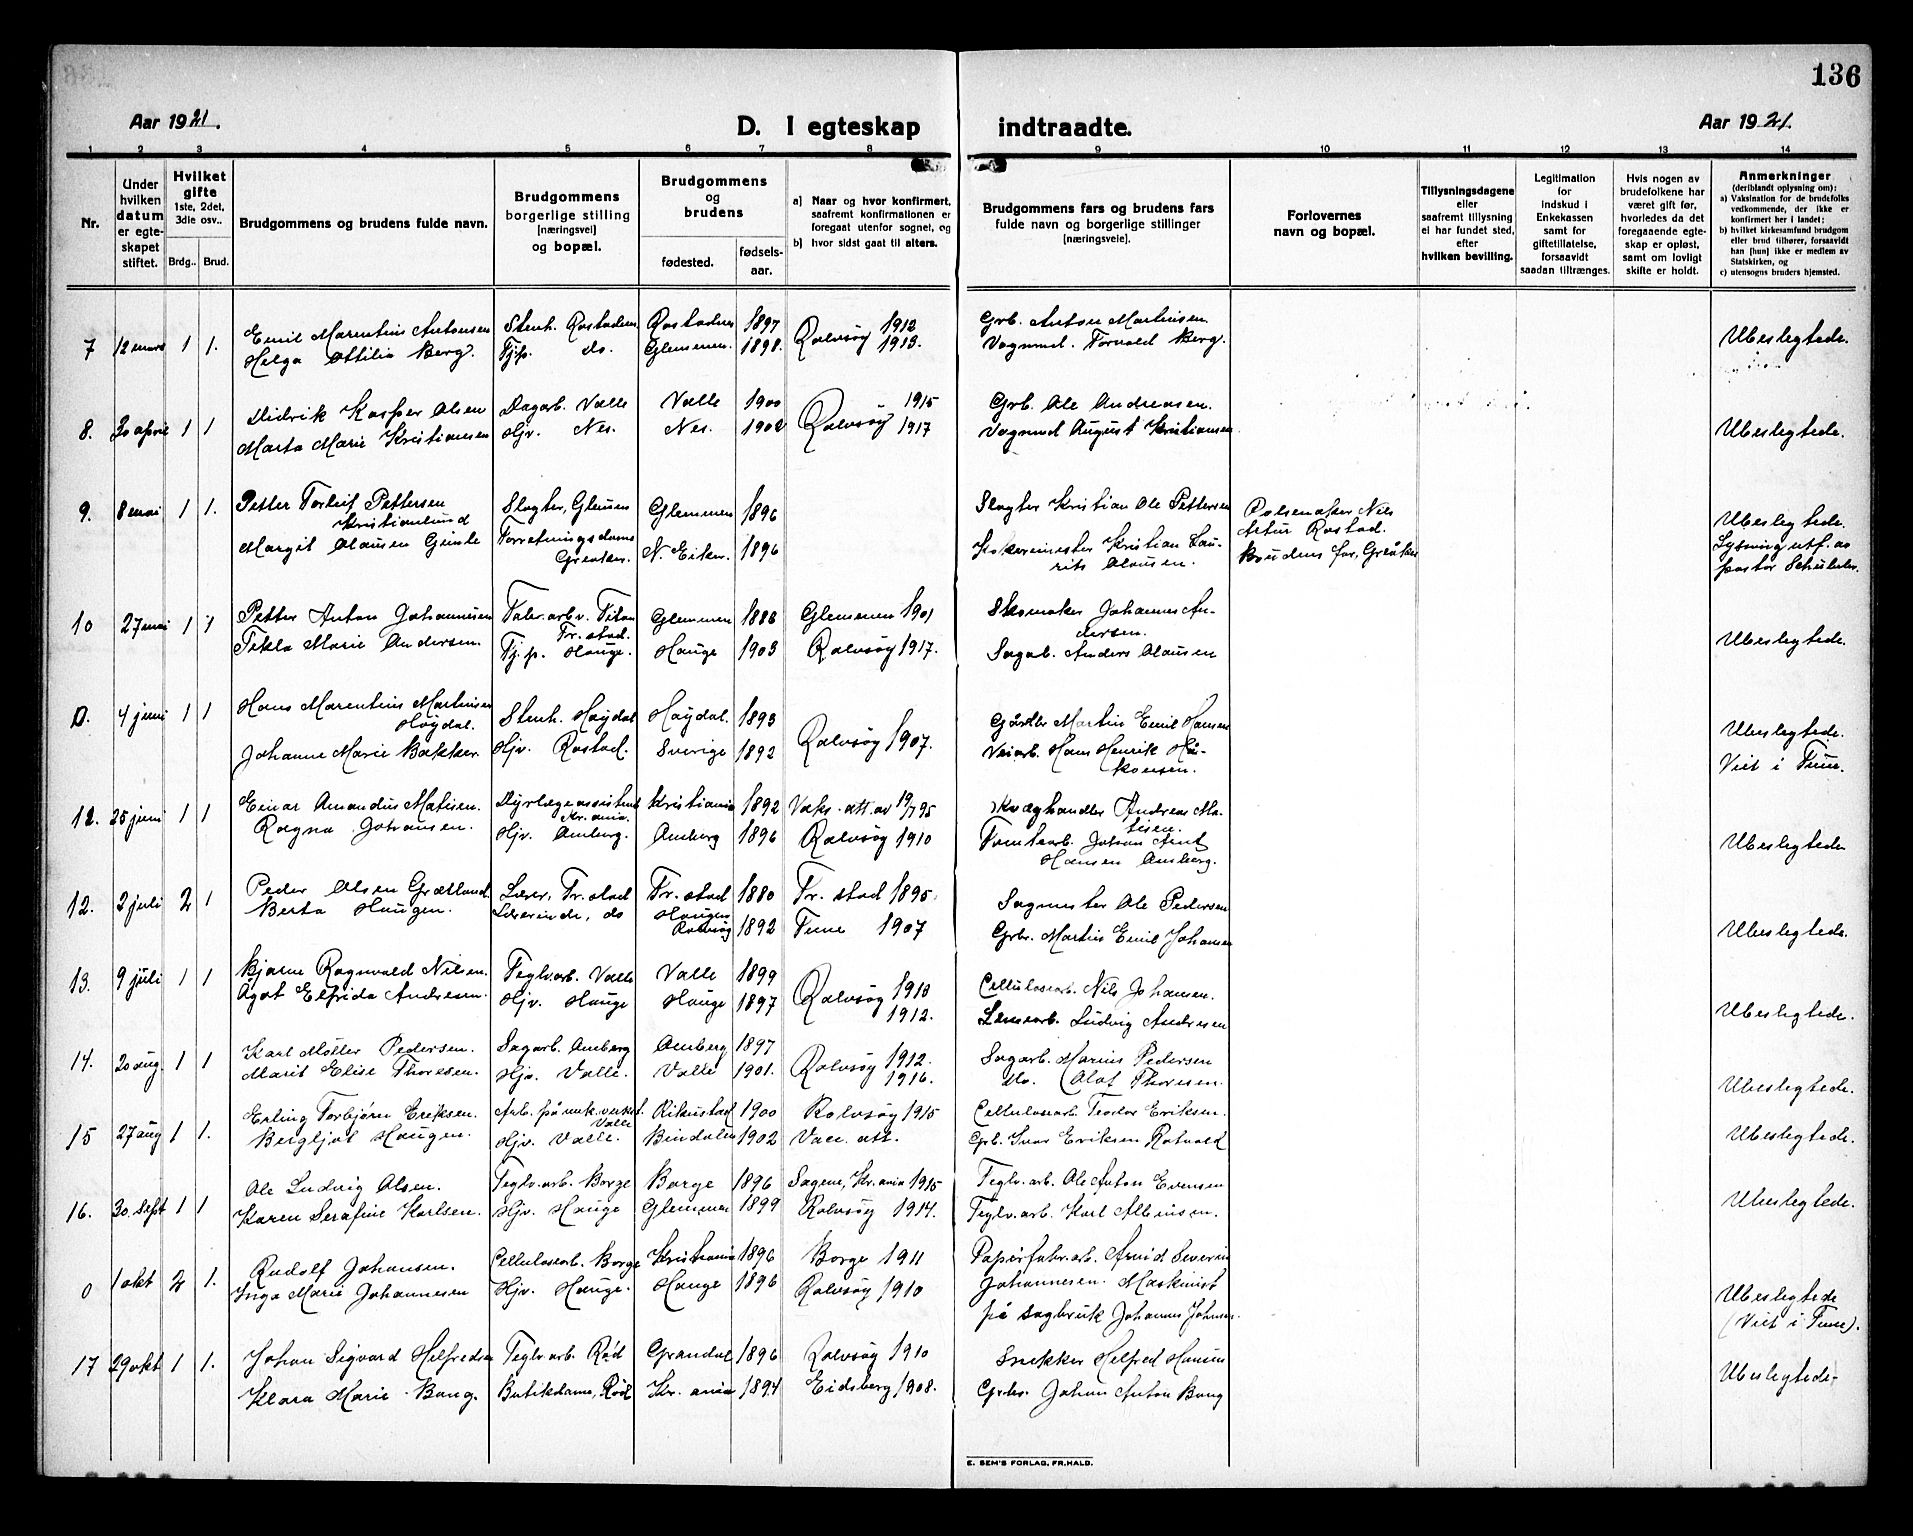 136
Aar 1921.
D. I egteskap indtraadte.
Aar 1921.
1 2 3 4 5 6 7 8 9 10 11 12 13 14
Nr.
Under hvilken datum er egteskapet stiftet.
Hvilket gifte 1ste, 2det, 3die osv..
Brdg.. Brud.
Brudgommens og brudens fulde navn.
Brudgommens borgerlige stilling [næringsvei] og bopæl.
Brudgommens og brudens
fødested.
fødselsaar.
a) Naar og hvor konfirmert, saafremt konfirmationen er foregaat utenfor sognet, og
b) hvor sidst gaat til alters.
Brudgommens fars og brudens fars fulde navn og borgerlige stillinger [næringsveie].
Forlovernes navn og bopæl.
Tillysningsdagene eller saafremt tillysning ei har fundet sted, efter hvilken bevilling.
Legitimation for indskud i Enkekassen samt for giftetillatelse, forsaavidt saadan tiltrænges.
Hvis nogen av brudefolkene har været gift før, hvorledes da det foregaaende egteskap er opløst, samt om lovligt skifte er holdt.
Anmerkninger (deriblandt oplysning om):
a) Vaksination for de brudefolks vedkommende, der ikke er konfirmert her i landet;
b) hvilket kirkesamfund brudgom eller brud tilhører, forsaavidt han [hun] ikke er medlem av Statskirken, og
c) utensogns bruders hjemsted.
7 12 mars 1 1. Emil Marentius Antonsen Stenh. Rostadnes Rostadnes 1897 Rolvsøy 1912 Grb. Anton Martinsen
Helga Ottilie Berg. Tjp. do. Glemmen. 1898. 1913. Vognmd. Torvald Berg. Ubeslegtede.
8. 30 april 1 1 Didrik Kasper Olsen Dagarb. Valle Valle 1900 Rolvsøy 1915 Grb. Ole Andreasen.
Marta Marie Kristiansen Hjv. Nes. Nes. 1902 1917 Vognmd August Kristiansen Ubeslegtede.
9. 8 mai 1 1. Petter Torleif Pettersen Slagter, Glemmen Glemmen 1896 Slagter Kristian Ole Pettersen Pølsemaker Nils
Kristianlund Artur Rostad. Ubeslegtede.
Margit Clausen Gimle Forretningsdame Greaker. N. Eiker. 1896 Kokermester Kristian Laurits Clausen. Brudens far, Greåker Lysning utf. av
pastor Schübeler.
10 27 mai 1 1 Petter Anton Johannesen Fabr. arb. v. Titan Fr. stad. Glemmen 1888 Glemmen 1901 Skomaker Johannes Andersen.
Tekla Marie Andersen. Tj. p. Hauge. Hauge 1903 Rolvsøy 1917. Sagab. Anders Olausen Ubeslegtede.
D. 4 juni 1 1 Hans Marentius Martinsen Høydal. Stenh. Høydal Høydal. 1893 Rolvsøy 1907. Martin Emil Hansen Ubeslegtede.
Johanne Marie Bakker. Hjv. Rostad. Sverige 1892 Veiarb. Hans Henrik Håkonsen. Viet i Tune.
12. 25 juni 1 1 Einar Amandus Matisen. Dyrlægeassistent Kr. ania. Kristiania 1892 Vaks. att. av 19/7 95 Kvæghandler Andreas Matisen.
Ragna Johansen. Hjv. Amberg. Amberg 1896 Rolvsøy 1910 Tomtearb. Johan Arnt Hansen Amberg. Ubeslegtede
12. 2 juli 2 1 Peder Olsen Grætland Lærer, Fr. stad Fr. stad 1880 Fr. stad 1895. Sagmester Ole Pedersen
Berta Haugen. Lærerinde, do Haugen Rolvsøy 1892 Tune 1907 Grbr. Martin Emil Johansen Ubeslegtede.
13. 9 juli 1 1 Bjarne Ragnvald Nilsen. Teglv. arb. Valle Valle 1899 Rolvsøy 1913 Cellulosearb. Nils Johansen.
Agot Elfrida Andresen. Hjv. Hauge Hauge 1897 1912. Lensearb. Ludvig Andresen Ubeslegtede.
14. 20 aug. 1 1 Karl Møller Pedersen. Sagarb. Amberg Amberg 1897 Rolvsøy 1912. Sagarb. Marius Pedersen
Marit Elise Thoresen. Hjv. Valle. Valle 1901. 1916. do. Olaf Thoresen. Ubeslegtede.
15 27 aug 1 1. Erling Torbjørn Eriksen. Arb. på mek. verkst. Valle Rikenstad 1900 Rolvsøy 1915 Cellulosearb. Teodor Eriksen.
Bergljot Haugen. Hjv. Valle. Bindalen 1902 Vacc. att. Grb. Ivar Eriksen Ubeslegtede.
16. 30. sept 1 1 Ole Ludvig Olsen. Teglv. arb. Borge Borge 1896 Sagene, Kr. ania 1915 Teglv. arb. Ole Anton Evensen
Karen Serafine Karlsen. Hjv. Hauge Glemmen 1899 Rolvsøy 1914. Teglv. arb. Karl Albinsen. Ubeslegtede.
0 1 okt 2 1. Rudolf Johansen. Cellulosearb. Borge Kristiania 1896 Borge 1911 Papirfabr. arb. Arvid Severin
Inga Marie Johannesen Hjv. Hauge. Hauge 1896 Rolvsøy 1910 Johannesen. Maskinist
på sagbruk Johannes Johnsen. Ubeslegtede
(Viet i Tune).
17 29 okt 1 1. Johan Sigvard Helfredsen Teglv. arb. Rød Grandal 1896 Rolvsøy 1910 Snekker Helfred Hansen
Klara Marie Bang. Butikdame, Rød Kr. ania 1894 Eidsberg 1908. Grbr. Johan Anton Bang Ubeslegtede.
E. SEM'S FORLAG, FR.HALD.